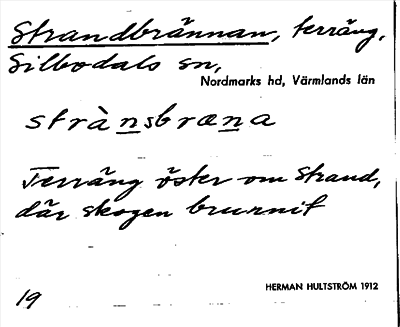 Strandbrännan, terräng,
Silbodals sn,
Nordmarks hd, Värmlands län
strànsbræna
Terräng öster om Strand,
där skogen brunnit
HERMAN HULTSTRÖM 1912
19